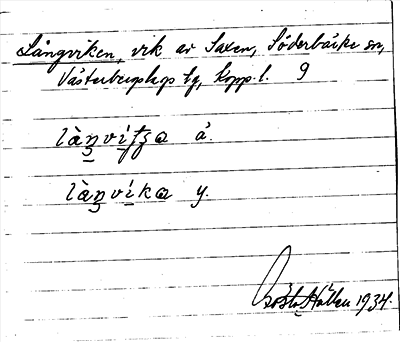 Långviken, vik av Saxen, Söderbärke sn,
Västerbergslags tg, Kopp. l. 9
å.
làŋvìka y.
Gösta Hallen 1934.